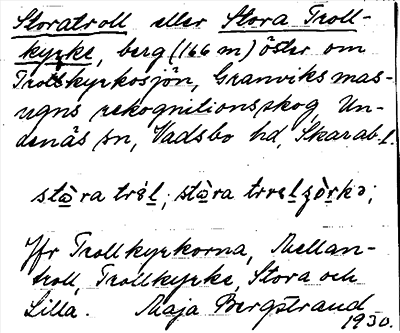 Storatroll eller Stora Troll-
kyrke, berg (166 m) öster om
Trollkyrkosjön, Granviks mas-
ugns rekognitionsskog, Un-
denäs sn, Vadsbo hd, Skarab. l.
Jfr Trollkyrkorna, Mellan-
troll, Trollkyrke, Stora och
Lilla. Maja Bergstrand
1930.